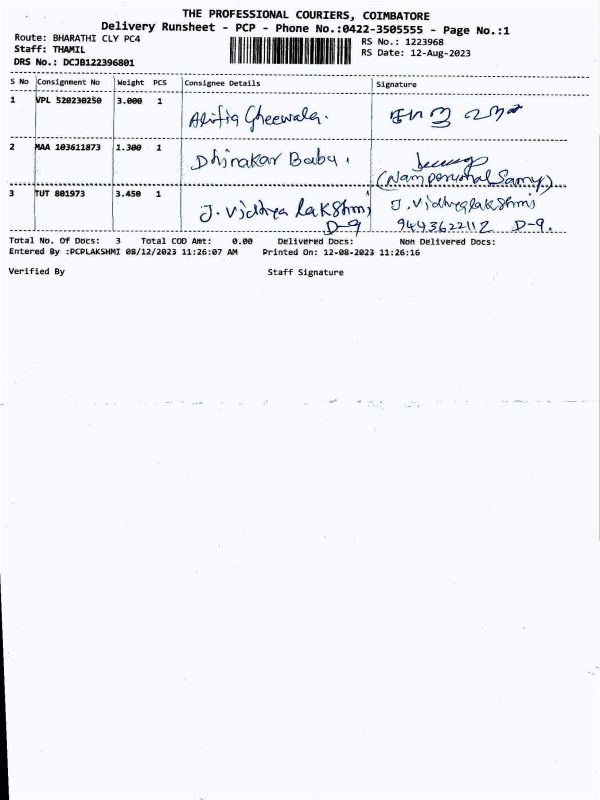 THE PROFESSIONAL COURIERS, COIMBATORE
Delivery Runsheet - PCP - Phone No.:0422-3505555 - Page No.:1
Route: BHARATHI CLY PC4
RS No.: 1223968
Staff: THAMIL
RS Date: 12-Aug-2023
DRS No.: DCJB122396801
S No Consignment No Weight PCS Consignee Details Signature
1 VPL 520230250 3.000 1 Alifia Gheewala.
2 MAA 103611873 1.300 1 Dhinakar Babu.
(Namperumal Samy)
3 TUT 801973 3.450 1 J. Vidhya lakshmi J. Vidhyalakshmi
D-9 9443622112 D-9.
Total No. Of Docs: 3 Total COD Amt: 0.00 Delivered Docs: Non Delivered Docs:
Entered By :PCPLAKSHMI 08/12/2023 11:26:07 AM Printed On: 12-08-2023 11:26:16
Verified By Staff Signature